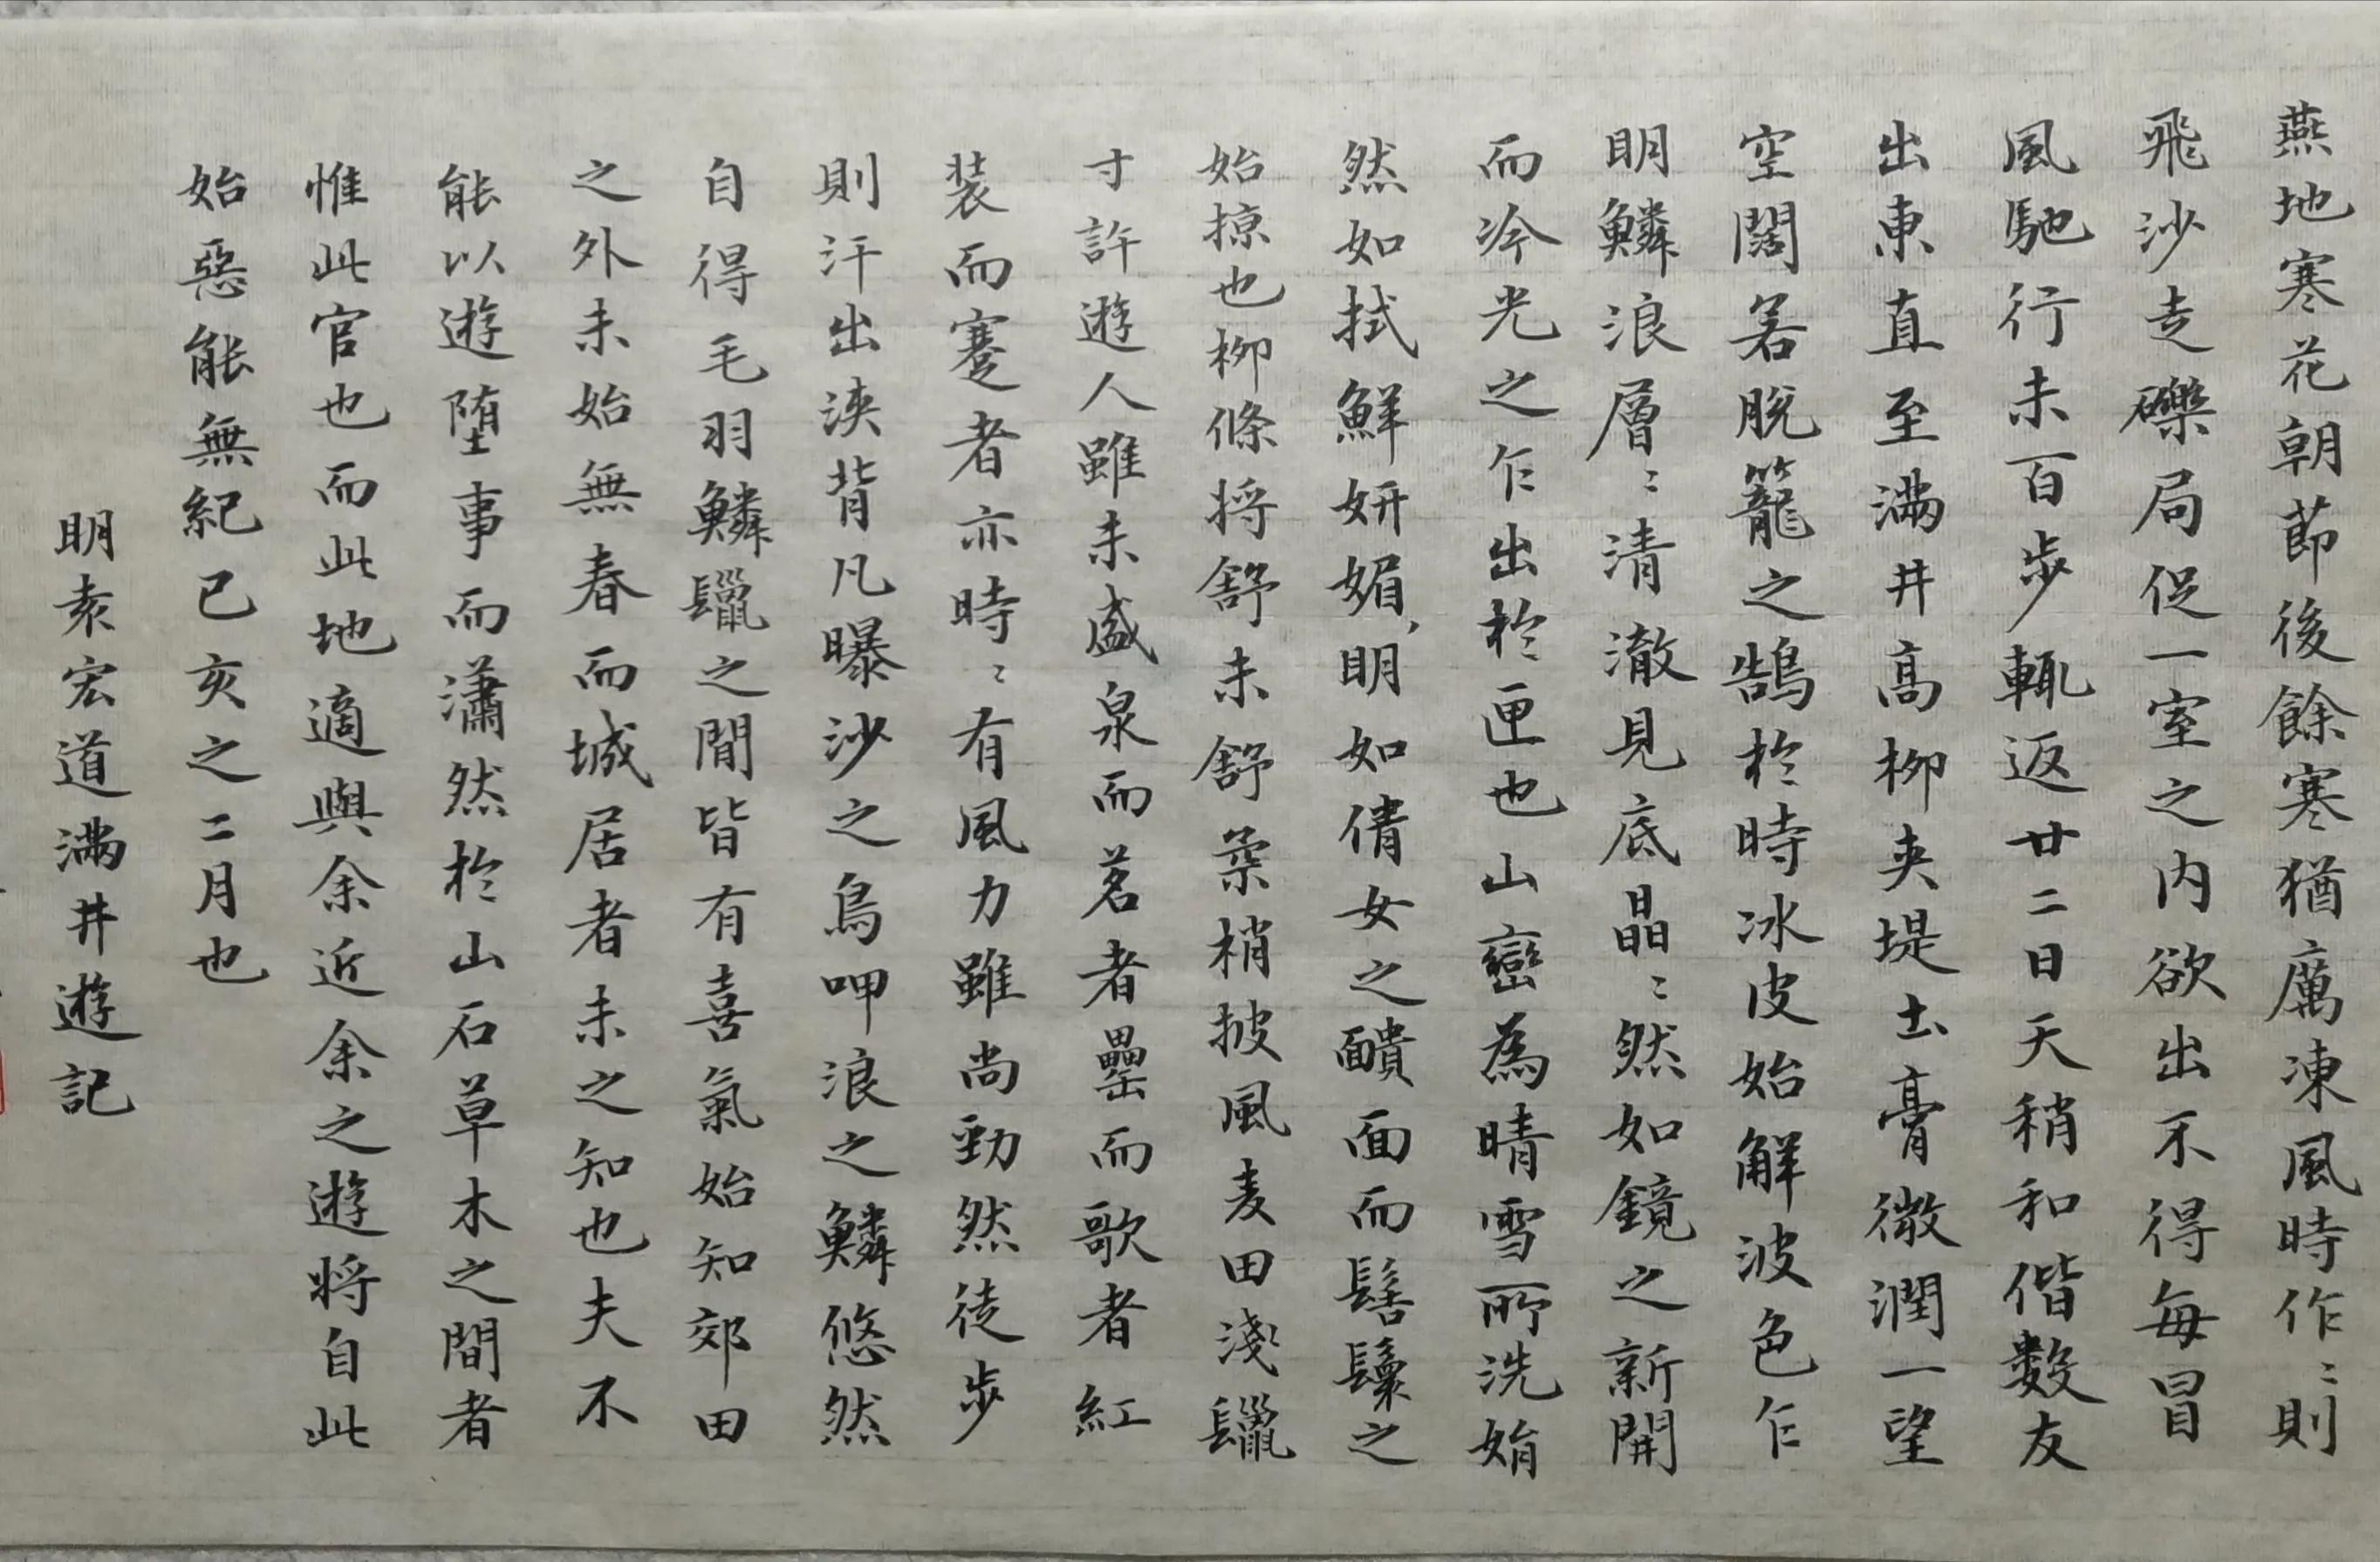 燕地寒花朝莭後餘寒猶厲凍風時作〻則
飛沙走礫局促一室之内欲出不得每冒
風馳行未百步輒返廿二日天稍和偕数友
出東直至滿井高柳夾堤土膏微潤一望
空闊若脫籠之鵠於時冰皮始解波色乍
明鱗浪層〻清澈見底晶〻然如鏡之新開
而冷光之乍出於匣也山巒為晴雪所洗娟
然如拭鮮妍媚,明如倩女之靧面而髻鬟之
始掠也柳條将舒未舒柔梢披風麦田淺鬣
寸許遊人雖未盛泉而茗者罍而歌者紅
装而蹇者亦時〻有風力雖尚勁然徒步
則汗出浹背凡曝沙之鳥呷浪之鱗悠然
自得毛羽鱗鬣之間皆有喜氣始知郊田
之外未始無春而城居者未之知也夫不
能以遊堕事而瀟然於山石草木之間者
惟此官也而此地適與余近余之遊将自此
始惡能無紀已亥之二月也
明袁宏道滿井遊記